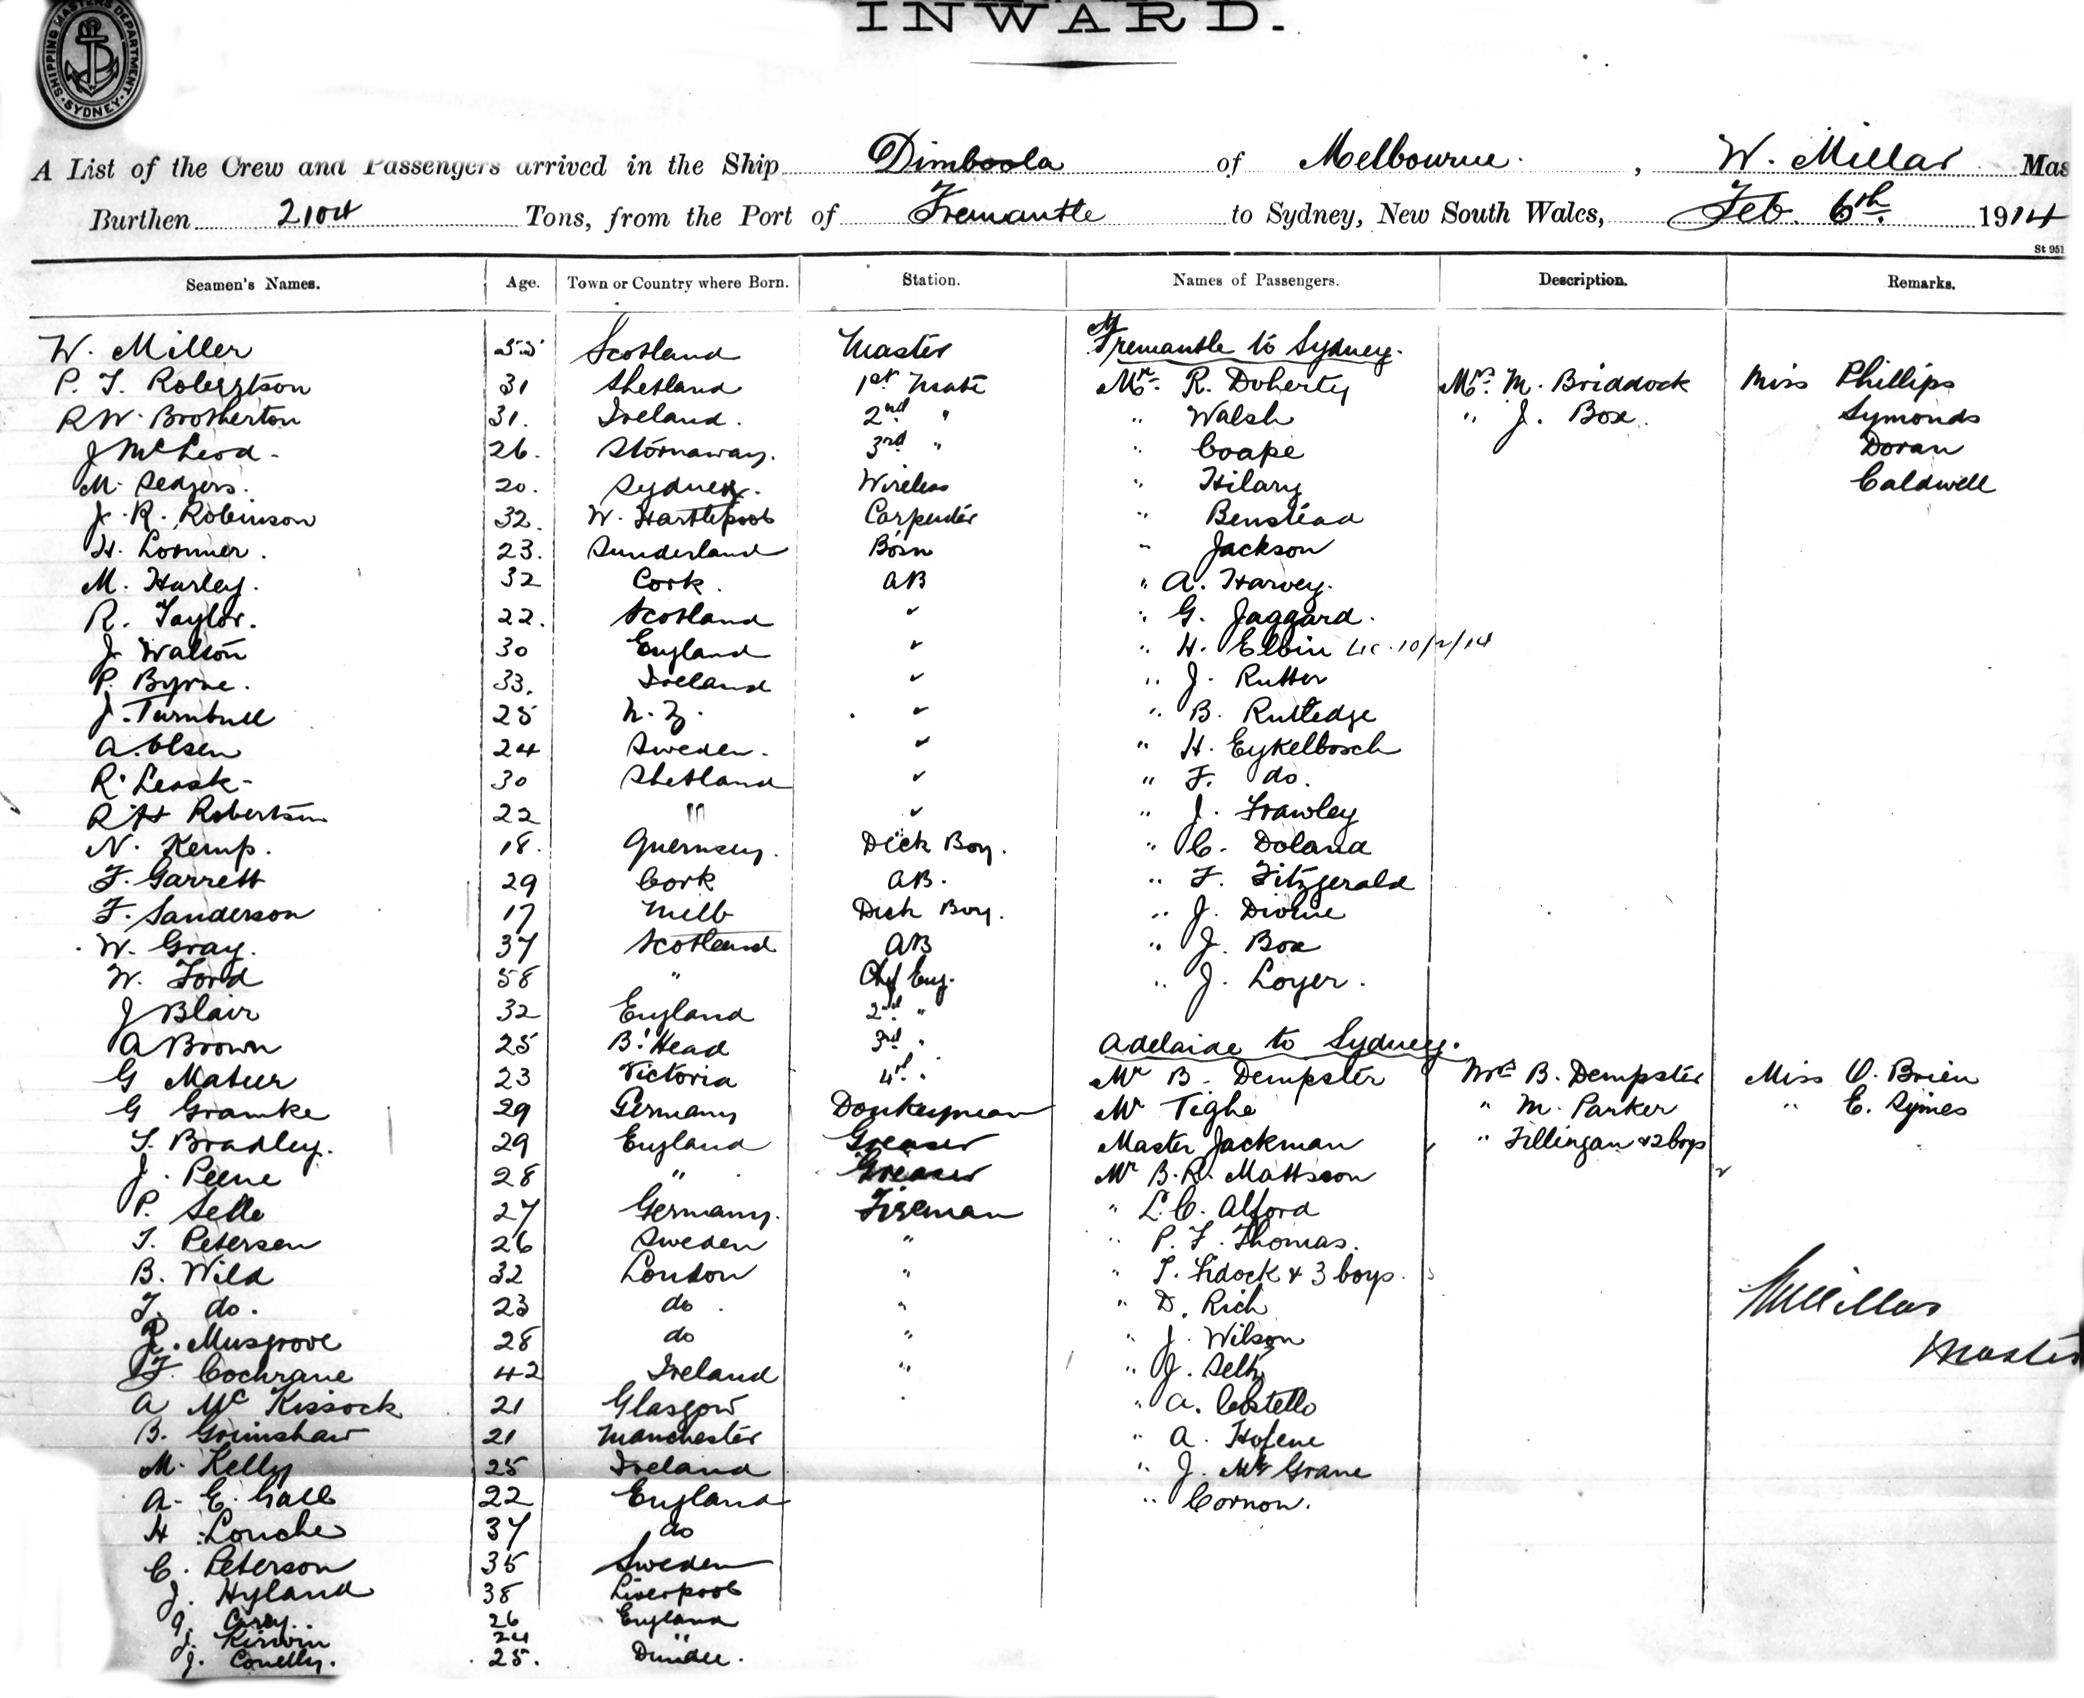 INWARD.
SHIPPING MASTERS DEPARTMENT SYDNEY
A List of the Crew and Passengers arrived in the Ship Dimboola of Melbourne. , W. Millar Mas
Burthen Tons, from the Port of Fremantle to Sydney, New South Wales, Feb. 6th. 1914
St 951
Seamen's Names. Age. Town or Country where Born. Station. Names of Passengers. Description. Remarks.
W. Miller 55 Scotland Master Fremantle to Sydney.
P. T. Robertson 31 Shetland 1st Mate Mr. R. Doherty Mrs. M. Briddock Miss Phillips
R W. Brotherton 31. Ireland. 2nd " " Walsh " J. Box. Symonds
J McLeod - 26. Stornaway. 3rd " " Coape Doran
M. Sedgers. 20. Sydney. Wireless " Hilary Caldwell
J. R. Robinson 32. W. Hartlepool Carpenter " Benstead
H. Lorimer. 23. Sunderland Bosn " Jackson
M. Hurley. 32 Cork. AB " A. Harvey.
R. Taylor. 22. Scotland " " G. Jaggard.
J. Walton 30 England " " H. Elbin 10/2/14
P. Byrne. 33. Ireland " " J. Rutter
J. Turnbull 25 N. Z. " " B. Rutledge
A. Olsen 24 Sweden. " " H. Eykelbosch
R. Leask - 30 Shetland " " F. do.
R H Robertson 22 " " " J. Frawley
N. Kemp. 18. Guernsey. Deck Boy. " C. Doland
F. Garrett 29 Cork AB. " F. Fitzgerald
F. Sanderson 17 Melb Deck Boy. " J. Divine
W. Gray. 37 Scotland AB " J. Box
W. Ford 58 " Chf Eng. " J. Loyer.
J Blair 32 England 2nd "
A Brown 25 B. Head 3rd " Adelaide to Sydney.
G Mateer 23 Victoria 4th " Mr B. Dempster Mrs B. Dempster Miss O. Brien
G Gramke 29 Germany Donkeyman Mr Tighe " M. Parker " E. Symes
T. Bradley. 29 England Greaser Master Jackman " Fillingan & 2 boys
J. Peene 28 " Greaser Mr B. R. Mattsson
P. Selle 27 Germany. Fireman " L. C. Alford
T. Petersen 26 Sweden " " P. F. Thomas.
B. Wild 32 London " " T. & 3 boys.
T. do. 23 do. " " D. Rich
R. Musgrove 28 do " " J. Wilson
F. Cochrane 42 Ireland " " J.
A McKissock 21 Glasgow " A. Costello
B. Grimshaw 21 Manchester " A.
M. Kelly 25 Ireland " J. McGrane
A. E. Gall 22 England " Cornon.
H. Louche 37 do
C. Peterson 35 Sweden
J. Hyland 38 Liverpool
J. Carey. 26 England
J. Kirwin 24 "
J. Conelly. 25. Dundee.
WMillar
Master